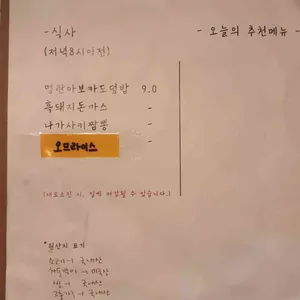 - 식사
(저녁 8시 이전)
명란아보카도덮밥 9.0
흑돼지돈가스 -
나가사키짬뽕 -
오므라이스 -
(재료소진 시, 일찍 마감될 수 있습니다.)
- 오늘의 추천메뉴 -
*원산지 표기
국내산
미국산
쌀 → 국내산
국내산